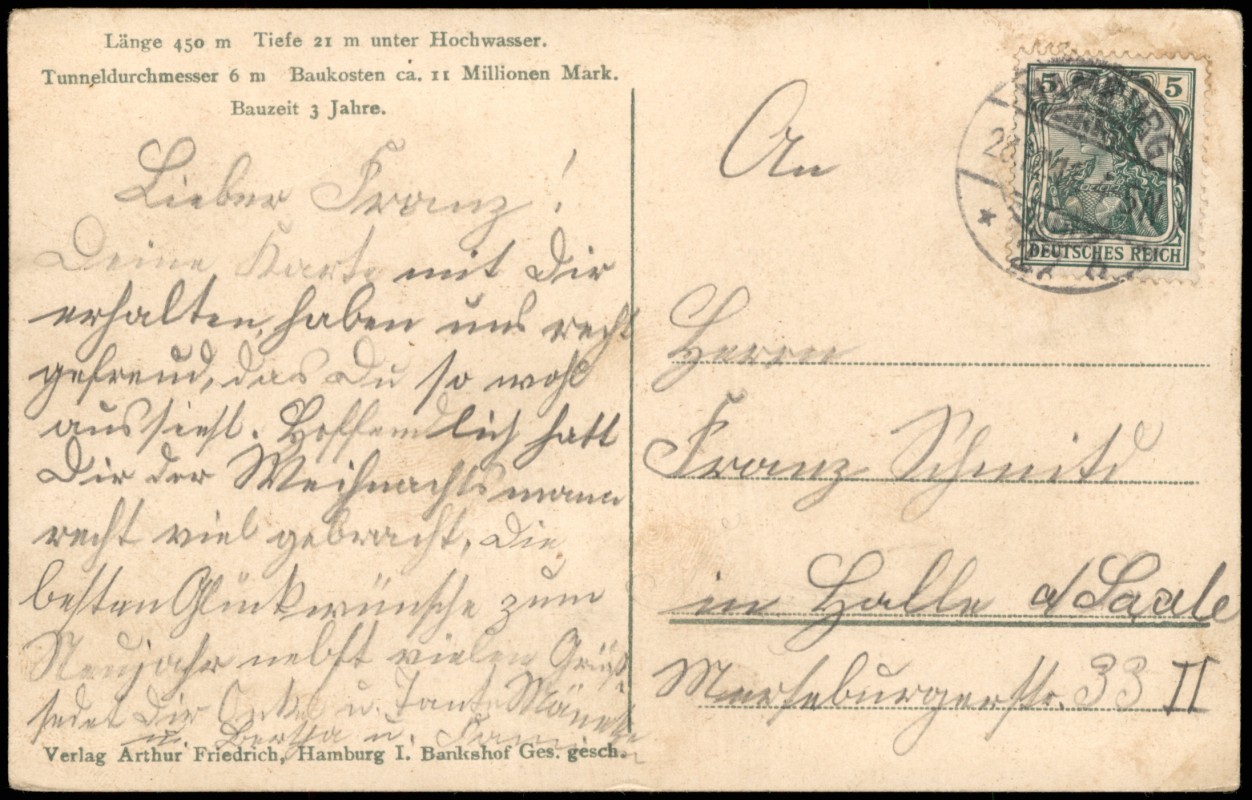 Länge 450 m Tiefe 21 m unter Hochwasser.
Tunneldurchmesser 6 m Baukosten ca. 11 Millionen Mark.
Bauzeit 3 Jahre.
Lieber Franz!
Deine Karte mit Dir
erhalten, haben uns recht
gefreud, das Du so wohl
aussiehst. Hoffendlich hatt
Dir der Weihnachtsmann
recht viel gebracht. Die
besten Glückwünsche zum
Neujahr nebst vielen Grüß
sedet Dir Onkel u. Tante
u. Bertha u.
Verlag Arthur Friedrich, Hamburg I. Bankshof Ges. gesch.
5 5
DEUTSCHES REICH
An
Herrn
Franz Schmitd
in Halle a/Saale
Merseburgerstr. 33 II